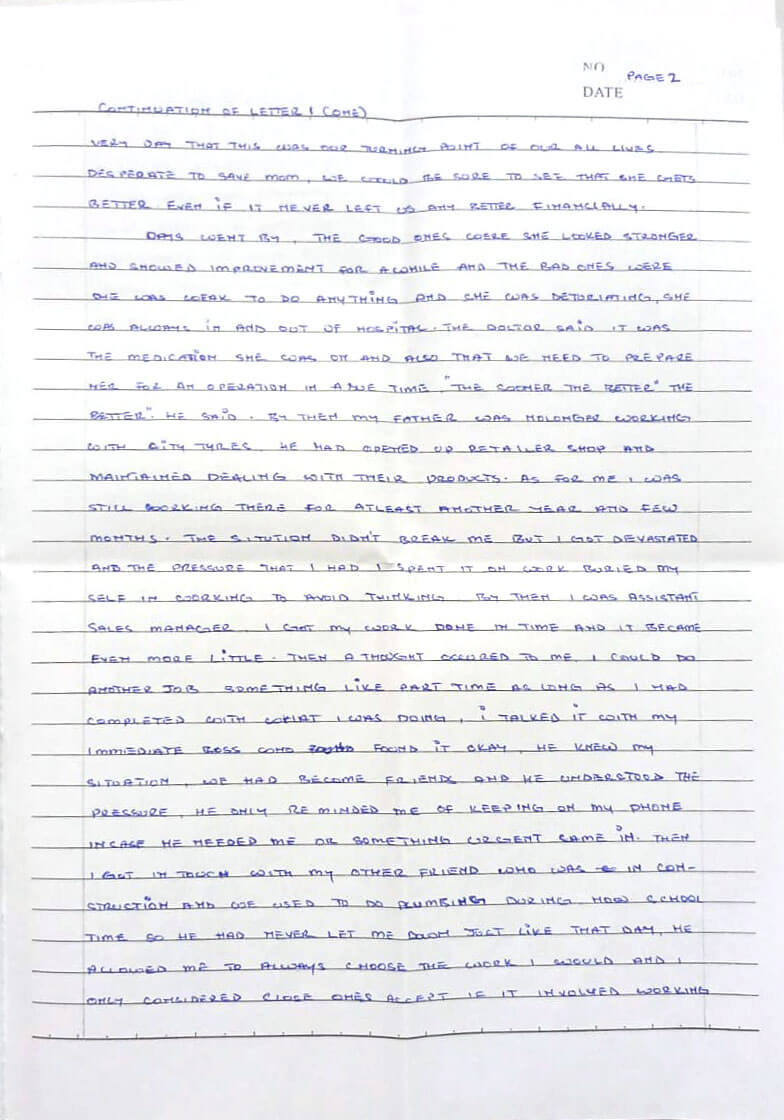 NO
PAGE 2
DATE
CONTINUATION OF LETTER 1 (ONE)
VERY DAY THAT THIS WAS OUR TURNING POINT OF OUR ALL LIVES
DESPERATE TO SAVE MOM, WE COULD BE SURE TO SEE THAT SHE GETS
BETTER EVEN IF IT NEVER LEFT US ANY BETTER FINANCIALLY.
DAYS WENT BY, THE GOOD ONES WERE SHE LOOKED STRONGER
AND SHOWED IMPROVEMENT FOR AWHILE AND THE BAD ONES WERE
SHE WAS WEAK TO DO ANYTHING AND SHE WAS DETORIATING, SHE
WAS ALWAYS IN AND OUT OF HOSPITAL. THE DOCTOR SAID IT WAS
THE MEDICATION SHE WAS ON AND ALSO THAT WE NEED TO PREPARE
HER FOR AN OPERATION IN A DUE TIME, "THE SOONER THE BETTER" THE
BETTER". HE SAID. BY THEN MY FATHER WAS NOLONGER WORKING
WITH CITY TYRES. HE HAD OPENED UP RETAILER SHOP AND
MAINTAINED DEALING WITH THEIR PRODUCTS. AS FOR ME I WAS
STILL WORKING THERE FOR ATLEAST ANOTHER YEAR AND FEW
MONTHS. THE SITUTION DIDN'T BREAK ME BUT I GOT DEVASTATED
AND THE PRESSURE THAT I HAD I SPENT IT ON WORK BURIED MY
SELF IN WORKING TO AVOID THINKING. BY THEN I WAS ASSISTANT
SALES MANAGER. I GOT MY WORK DONE IN TIME AND IT BECAME
EVEN MORE LITTLE. THEN A THOUGHT OCCURED TO ME, I COULD DO
ANOTHER JOB SOMETHING LIKE PART TIME AS LONG AS I HAD
COMPLETED WITH WHAT I WAS DOING, I TALKED IT WITH MY
IMMEDIATE BOSS WHO FOUND IT OKAY, HE KNEW MY
SITUATION, WE HAD BECOME FRIENDS AND HE UNDERSTOOD THE
PRESSURE, HE ONLY REMINDED ME OF KEEPING ON MY PHONE
INCASE HE NEEDED ME OR SOMETHING URGENT CAME IN. THEN
I GOT IN TOUCH WITH MY OTHER FRIEND WHO WAS IN CON-
STRUCTION AND WE USED TO DO PLUMBING DURING HIGH SCHOOL
TIME SO HE HAD NEVER LET ME DOWN JUST LIKE THAT DAY, HE
ALLOWED ME TO ALWAYS CHOOSE THE WORK I WOULD AND I
ONLY CONSIDERED CLOSE ONES ACCEPT IF IT INVOLVED WORKING